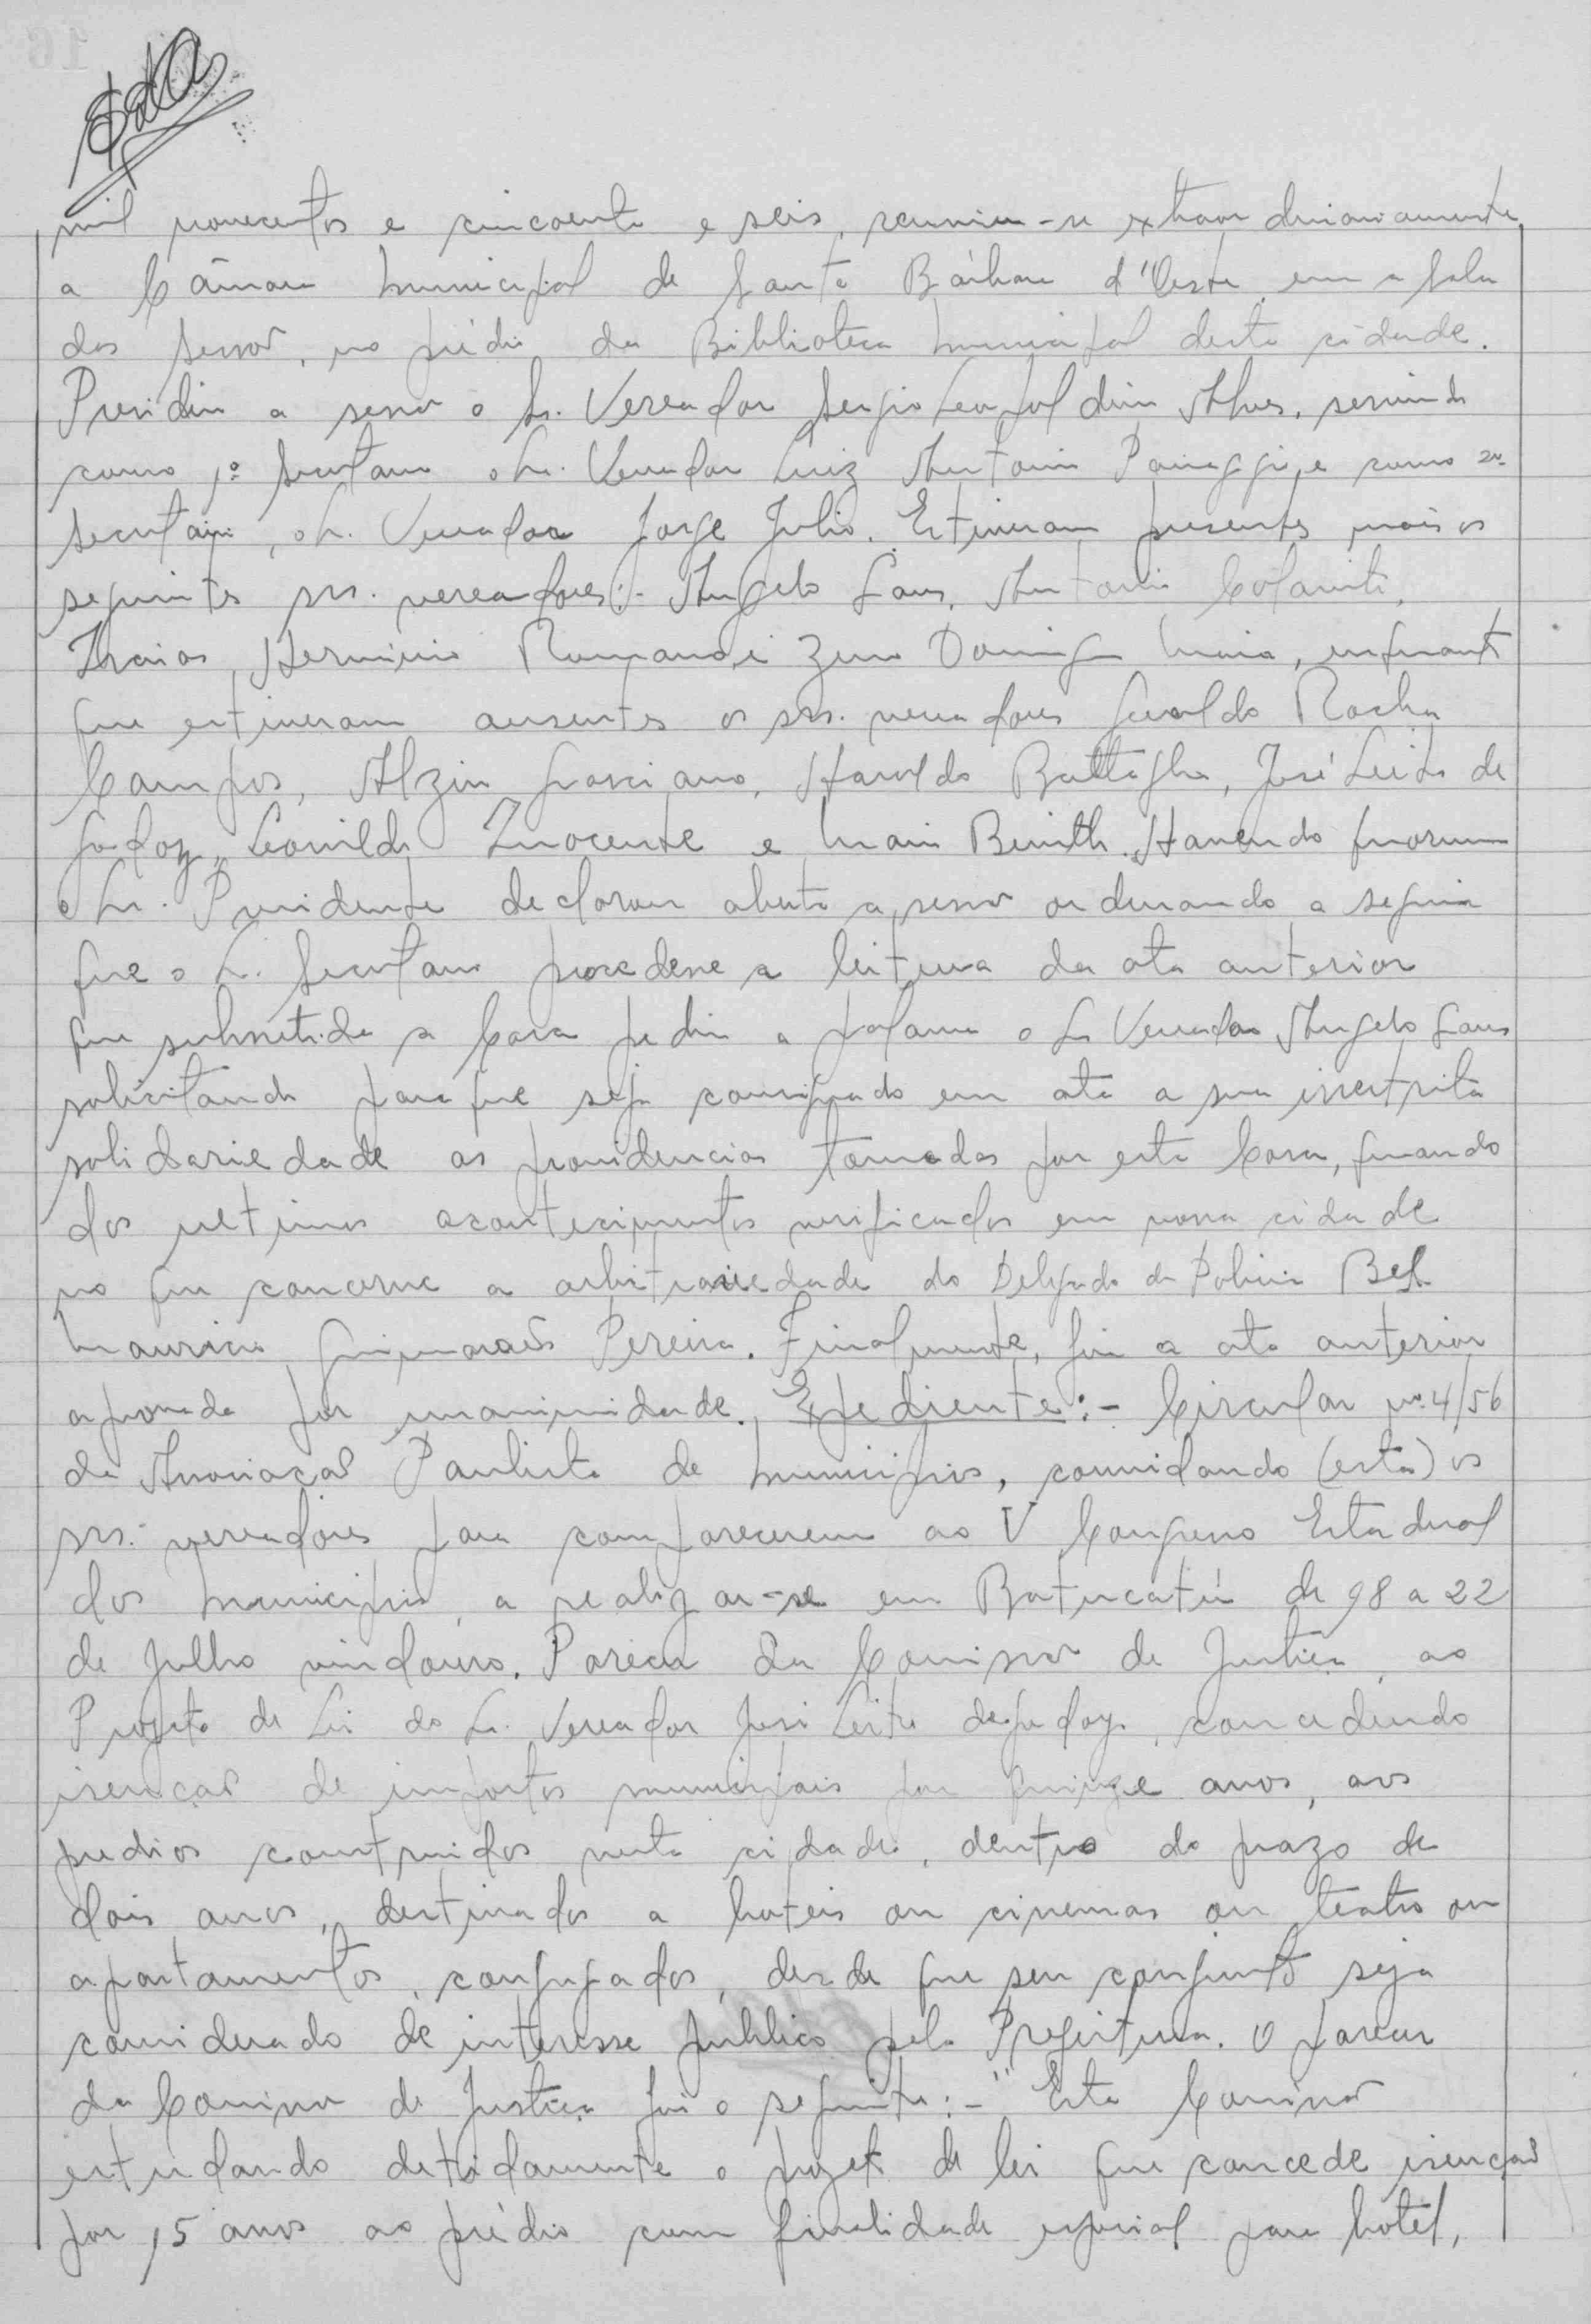 mil novecentos e cincoenta e seis, reuniu-se extraordinariamente
a Câmara Municipal de Santa Bárbara d'Oeste, em a sala
das sessões, no prédio da Biblioteca Municipal desta cidade.
Presidiu a sessão o Sr. Vereador Sergio Leopoldino Alves, servindo
como 1º Secretario o Sr. Vereador Luiz Antonio Panaggio, e como 2º
secretario, o Sr. Vereador Jorge Julio. Estiveram presentes mais os
seguintes srs. vereadores:- Angelo Sans, Antonio
Izaias Herminio Romano, e Zeno Domingos Maia, enquanto
que estiveram ausentes os srs. vereadores Geraldo Rocha
Campos, Alzin Graciano, Haroldo Battaglia, José Leite de
Godoy, Leonildo Inocente e Mario Benith. Havendo quorum
o Sr. Presidente declarou aberta a sessão ordenando a seguir
que o Sr. Secretario procedesse a leitura da ata anterior
que submetida a Casa pediu a palavra o Sr Vereador Angelo Sans
solicitando para que seja consignado em ata a sua irrestrita
solidariedade as providencias tomadas por esta Casa, quando
dos ultimos acontecimentos verificados em nossa cidade
no que concerne a arbitrariedade do Delegado de Policia Bel.
Mauricio Guimarães Pereira. Finalmente, foi a ata anterior
aprovada por unanimidade. Expediente:- Circular nº 4/56
da Associação Paulista de Municipios, convidando (esta) os
srs. vereadores para comparecerem ao V Congresso Estadual
dos Municipios, a realizar-se em Botucatú de 18 a 22
de Julho vindouro. Parecer da Comissão de Justiça, ao
Projeto de Lei do Sr. Vereador José Leite de Godoy, concedendo
isenção de impostos municipais por quinze anos, aos
predios construidos nesta cidade, dentro do prazo de
dois anos, destinados a hoteis ou cinemas ou teatro ou
apartamentos, conjugados, desde que seu conjunto seja
considerado de interesse público pela Prefeitura. O parecer
da Comissão de Justiça foi o seguinte:- "Esta Comissão
estudando detidamente o projeto de lei que concede isenção
por 15 anos ao prédio com finalidade especial para hotel,